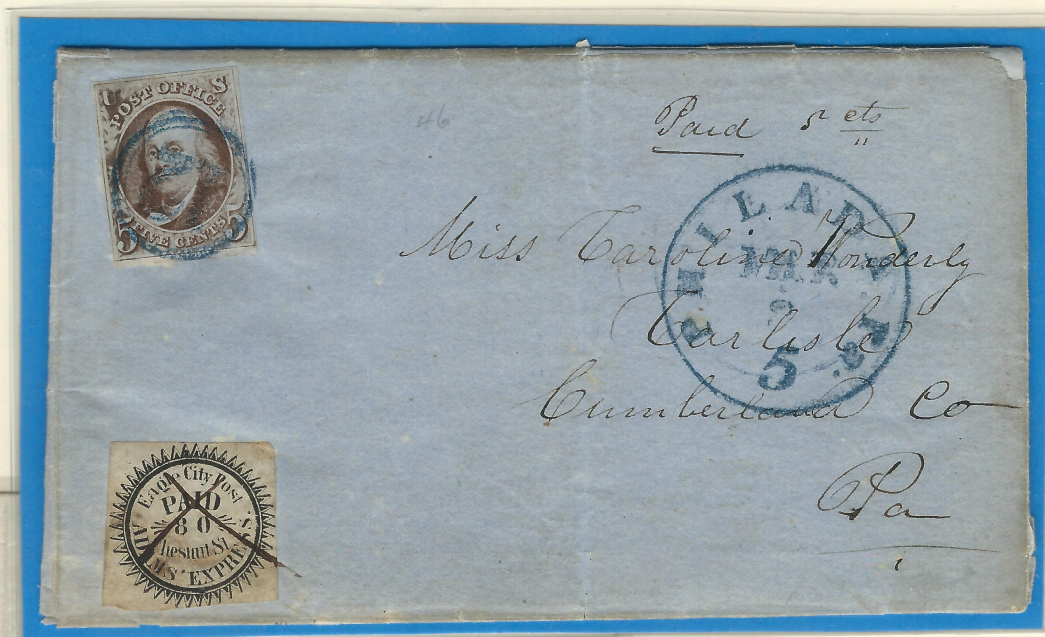 U S
POST OFFICE
5 FIVE CENTS 5
46
Paid 5 cts
PHILADA Pa.
MAR
5
Miss Caroline Wonderly
Carlisle
Cumberland Co
Pa
Eagle City Post
PAID
80
Chesnut St
ADAMS' EXPRESS.